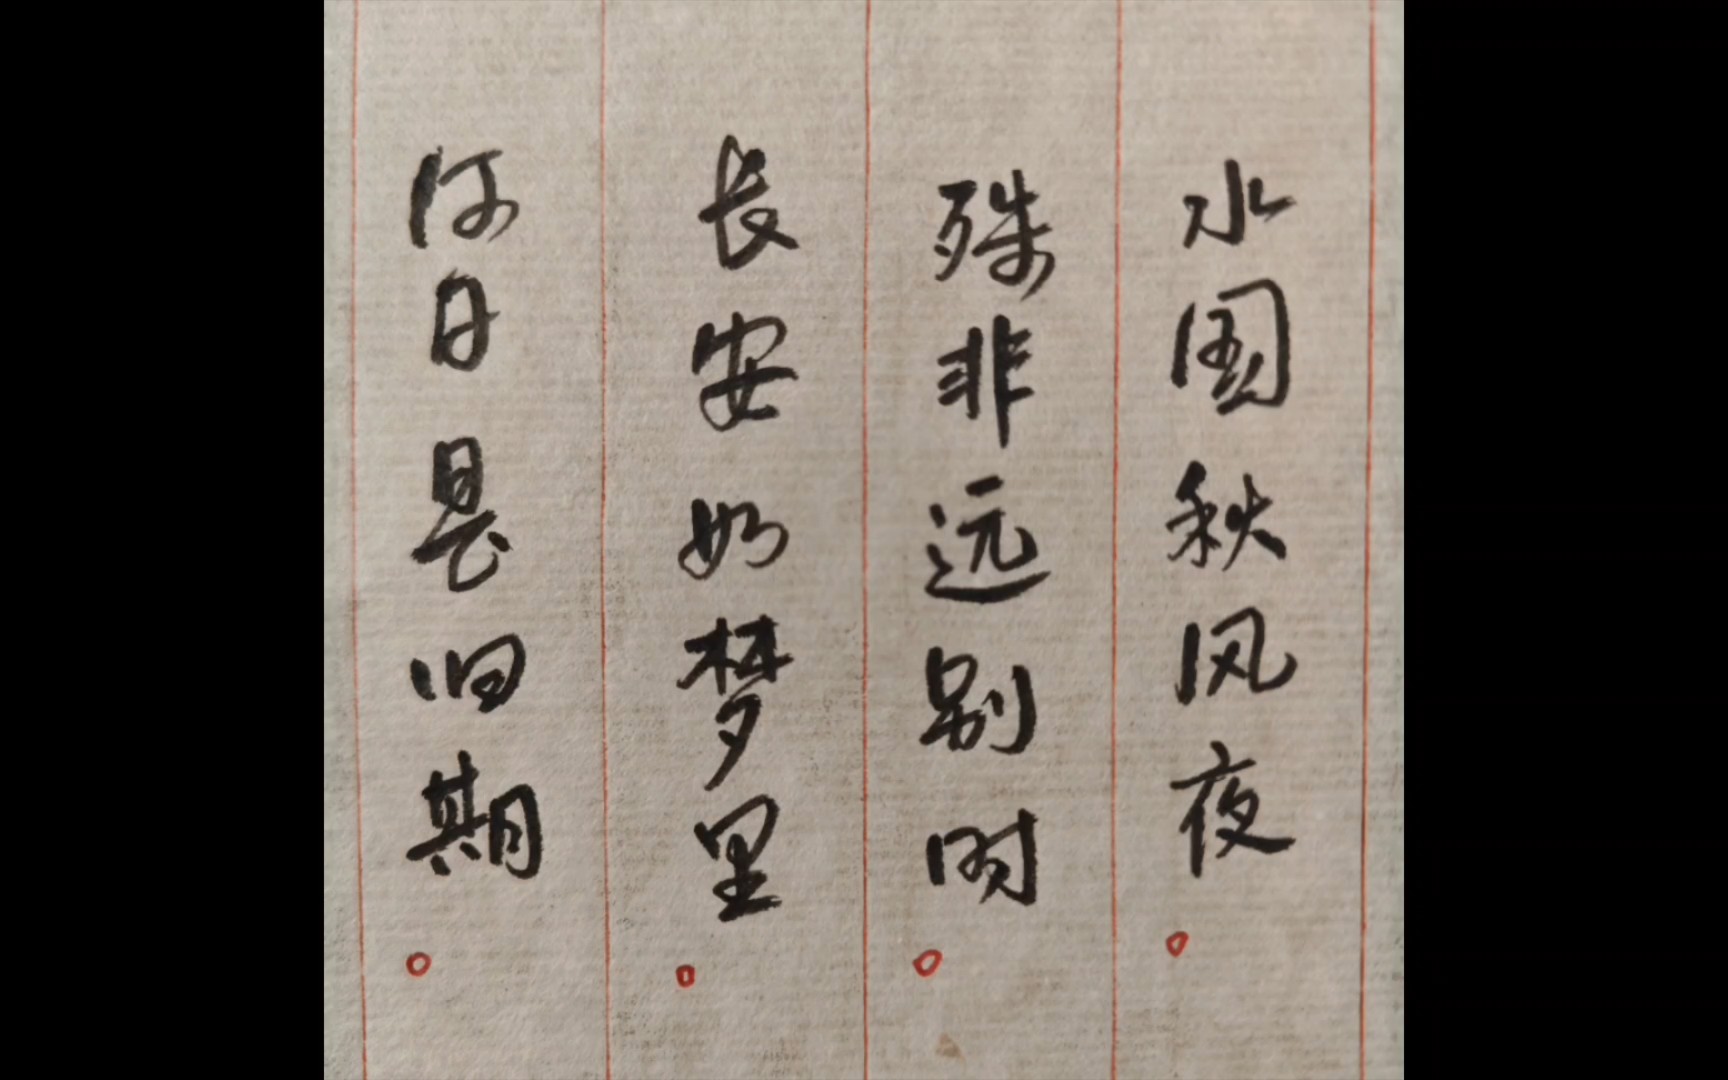 水国秋风夜。
殊非远别时。
长安如梦里。
何日是归期。